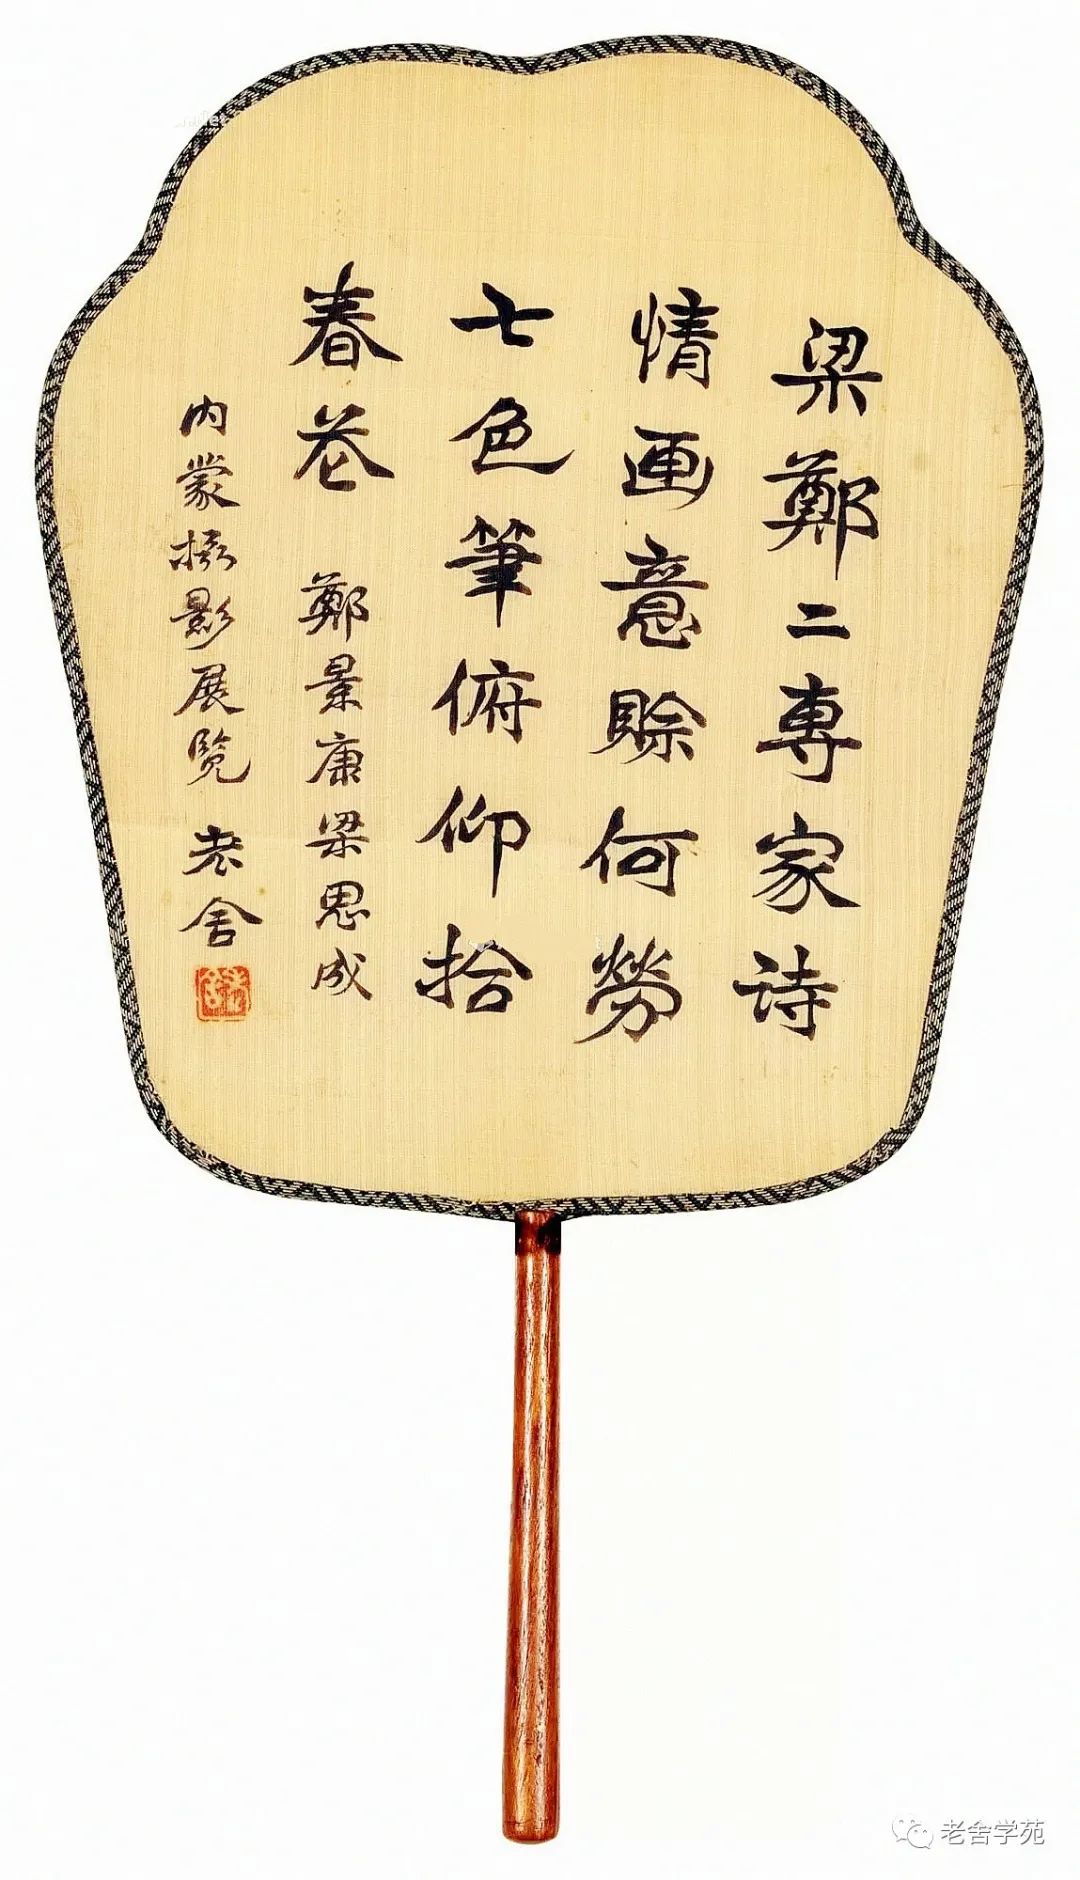 梁鄭二專家詩
情画意賒何勞
七色筆俯仰拾
春花 鄭景康梁思成
内蒙摄影展覽 老舍
老舍
老舍学苑